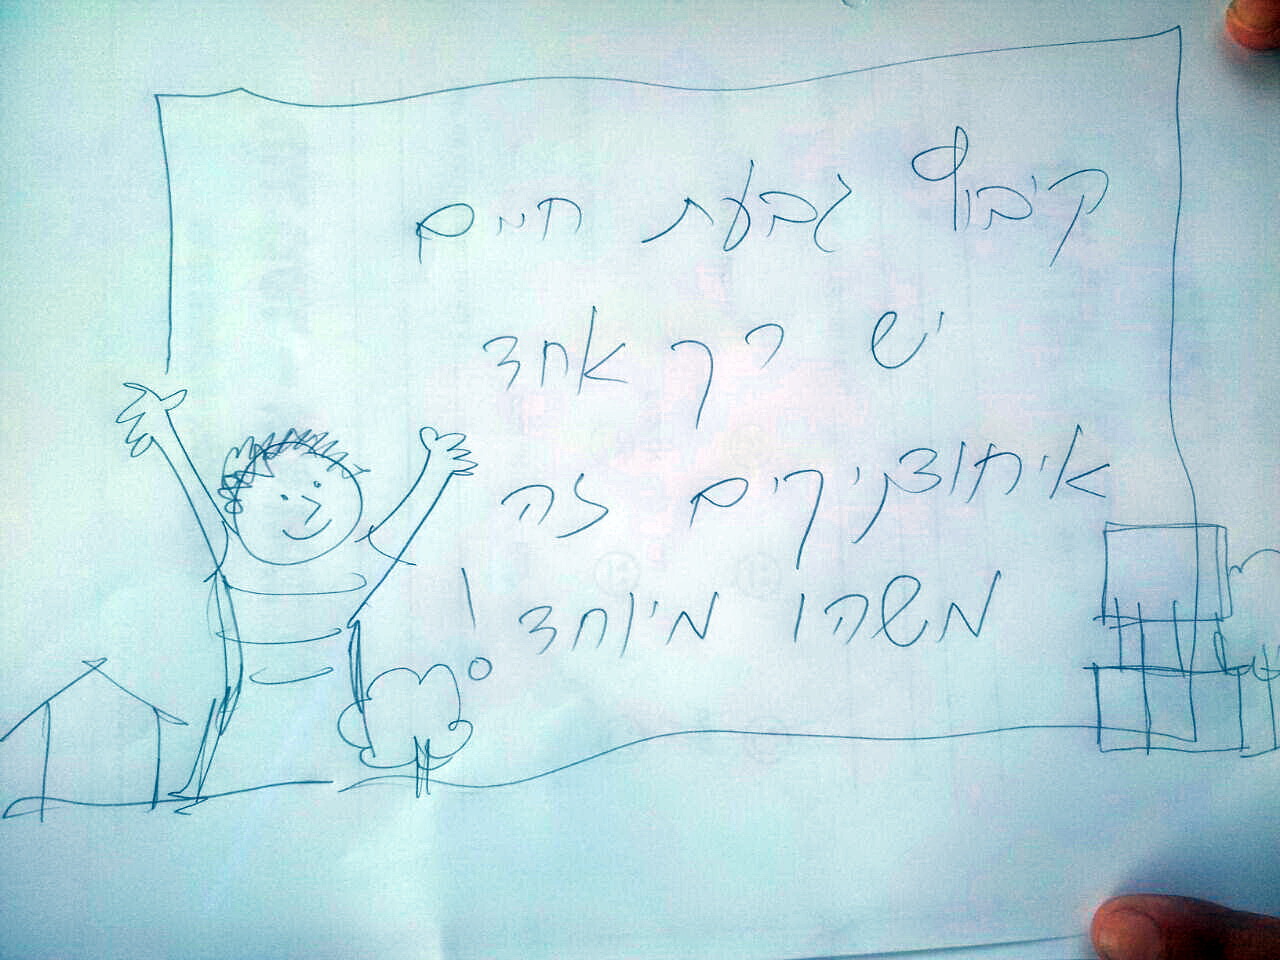 קיבוץ גבעת חיים
יש רק אחד
איחודניקים זה
משהו מיוחד!